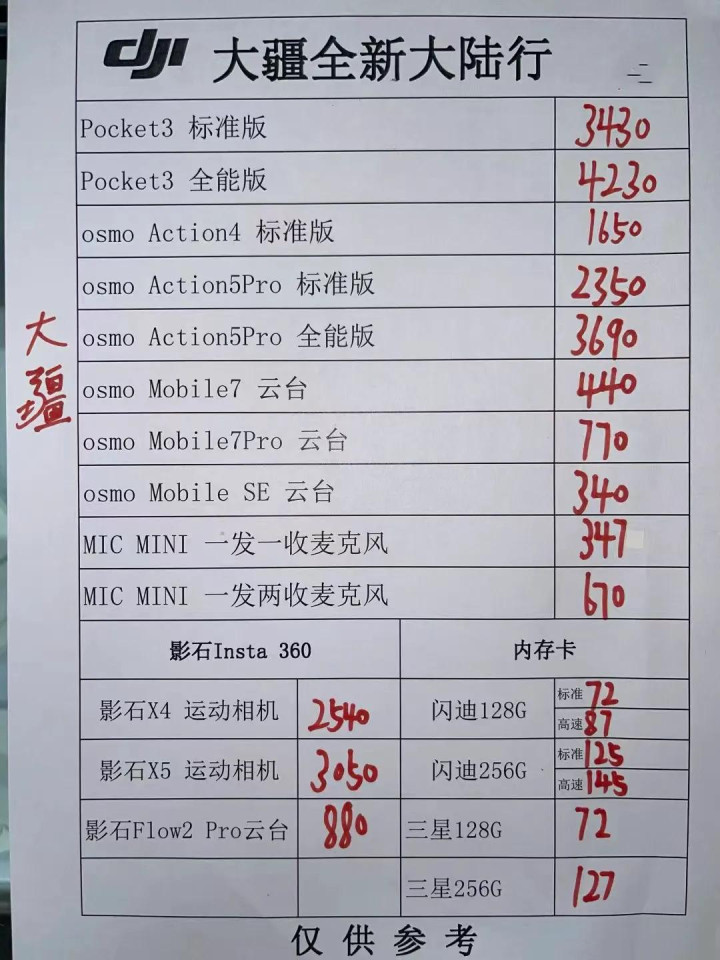 dji 大疆全新大陆行
Pocket3 标准版 3430
Pocket3 全能版 4230
osmo Action4 标准版 1650
osmo Action5Pro 标准版 2350
osmo Action5Pro 全能版 3690
osmo Mobile7 云台 440
osmo Mobile7Pro 云台 770
osmo Mobile SE 云台 340
MIC MINI 一发一收麦克风 347
MIC MINI 一发两收麦克风 670
大疆
影石Insta 360 内存卡
影石X4 运动相机 2540 闪迪128G 标准 72
高速 87
影石X5 运动相机 3050 闪迪256G 标准 125
高速 145
影石Flow2 Pro云台 880 三星128G 72
三星256G 127
仅供参考